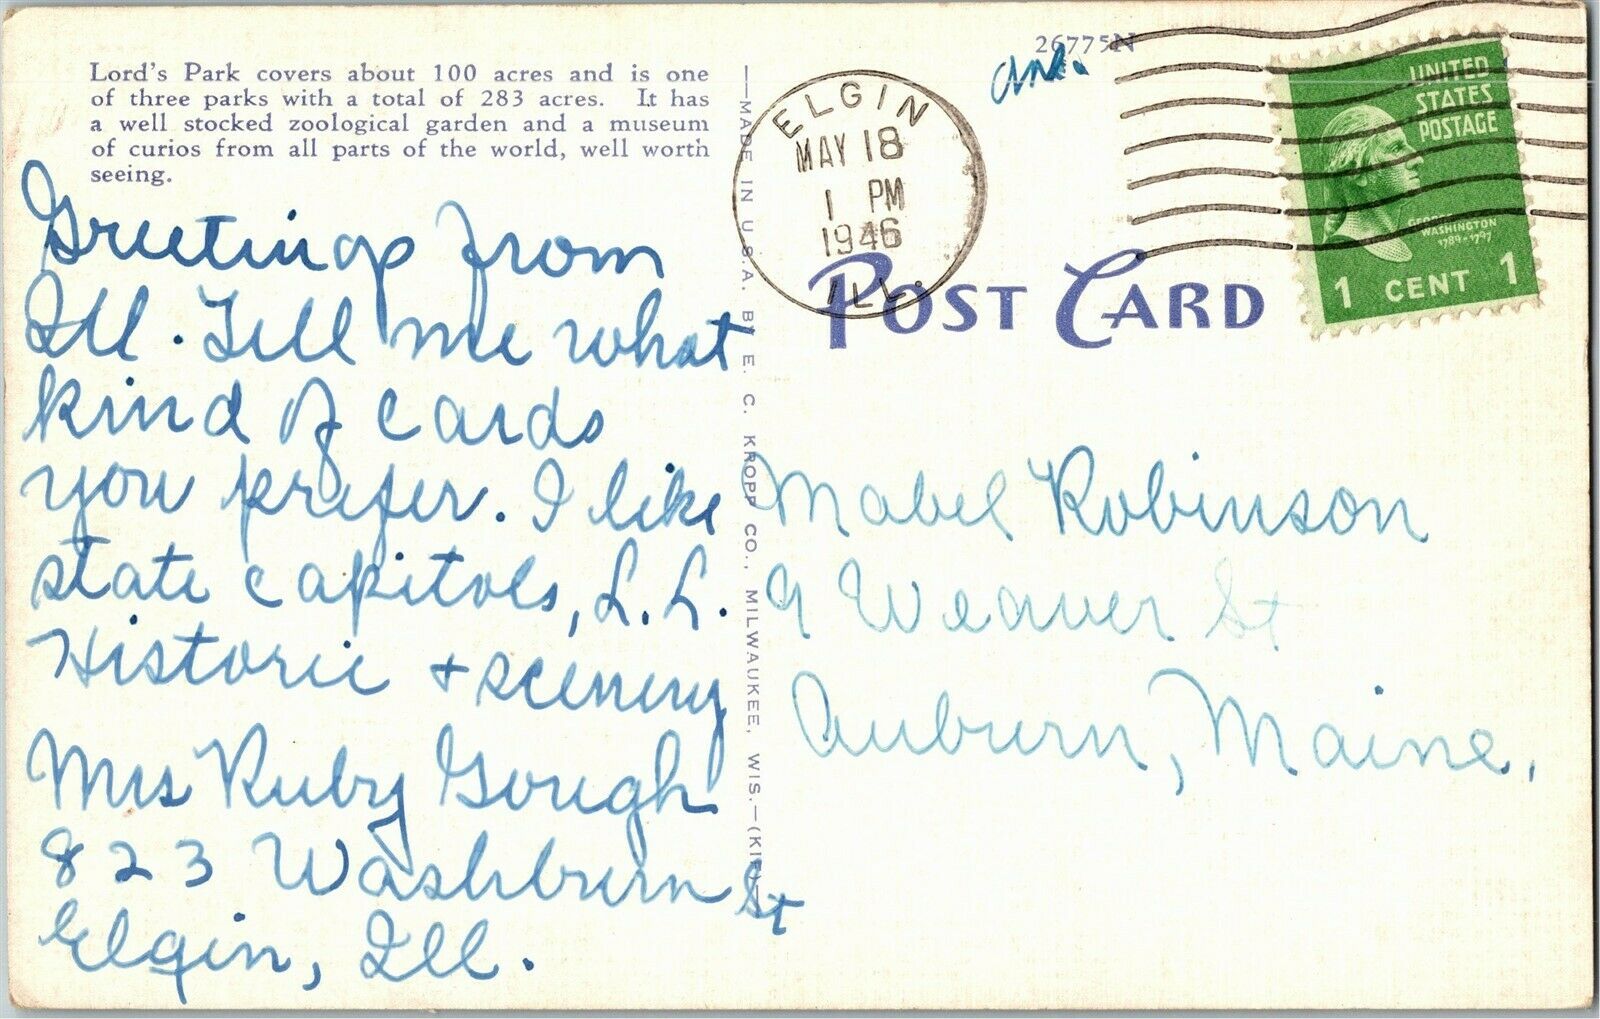 26775N
Ans.
Lord's Park covers about 100 acres and is one
of three parks with a total of 283 acres. It has
a well stocked zoological garden and a museum
of curios from all parts of the world, well worth
seeing.
Greetings from
Ill. Tell me what
kind of cards
you prefer. I like
state capitols, L.L.
Historic + scenery
Mrs Ruby Gough
823 Washburn St
Elgin, Ill.
—MADE IN U.S.A. BY E. C. KROPP CO., MILWAUKEE, WIS.—
ELGIN
MAY 18
1 PM
1946
ILL.
UNITED
STATES
POSTAGE
GEORGE
WASHINGTON
1789-1797
1 CENT 1
POST CARD
Mabel Robinson
9 Weaver St
Auburn, Maine.